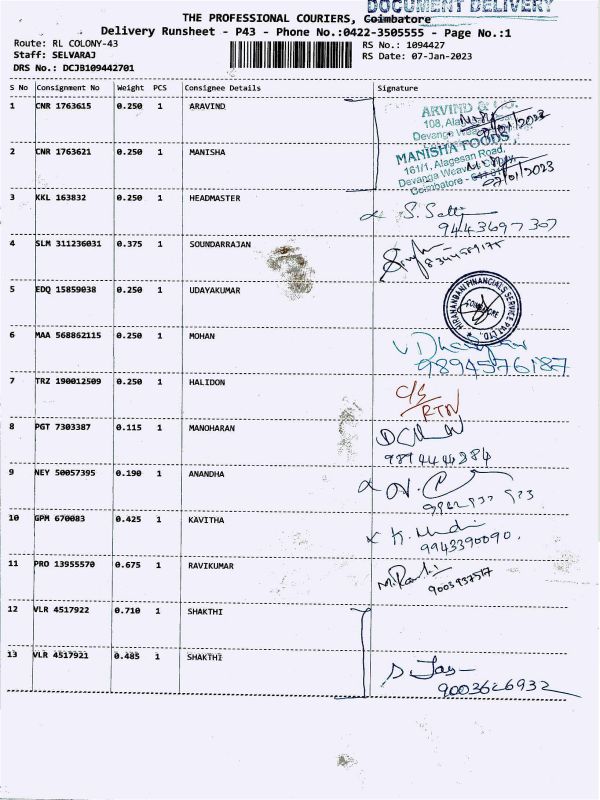 DOCUMENT DELIVERY
THE PROFESSIONAL COURIERS, Coimbatore
Delivery Runsheet - P43 - Phone No.:0422-3505555 - Page No.:1
Route: RL COLONY-43
RS No.: 1094427
Staff: SELVARAJ
RS Date: 07-Jan-2023
DRS No.: DCJB109442701
S No Consignment No Weight PCS Consignee Details Signature
1 CNR 1763615 0.250 1 ARAVIND
ARVIND & CO.
108, Alagesan
Devanga Weavers
07/01/2023
2 CNR 1763621 0.250 1 MANISHA
MANISHA FOODS,
161/1, Alagesan Road,
Devanga Weavers Colony,
Coimbatore -
07/01/2023
3 KKL 163832 0.250 1 HEADMASTER
9443697307
4 SLM 311236031 0.375 1 SOUNDARRAJAN
5 EDQ 15859038 0.250 1 UDAYAKUMAR
HIRANANDANI FINANCIAL SERVICE PVT. LTD.
COIMBATORE
6 MAA 568862115 0.250 1 MOHAN
9894576187
7 TRZ 190012509 0.250 1 HALIDON
C/S
RTN
8 PGT 7303387 0.115 1 MANOHARAN
9894444284
9 NEY 50057395 0.190 1 ANANDHA
10 GPM 670083 0.425 1 KAVITHA
9943390090.
11 PRO 13955570 0.675 1 RAVIKUMAR
9003937517
12 VLR 4517922 0.710 1 SHAKTHI
13 VLR 4517921 0.485 1 SHAKTHI
9003626932